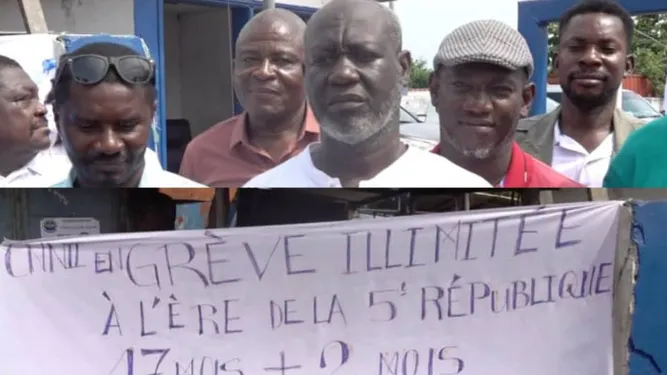 CNNII EN GRÈVE ILLIMITÉE
À L'ÈRE DE LA 5e RÉPUBLIQUE
17 MOIS + 2 MOIS